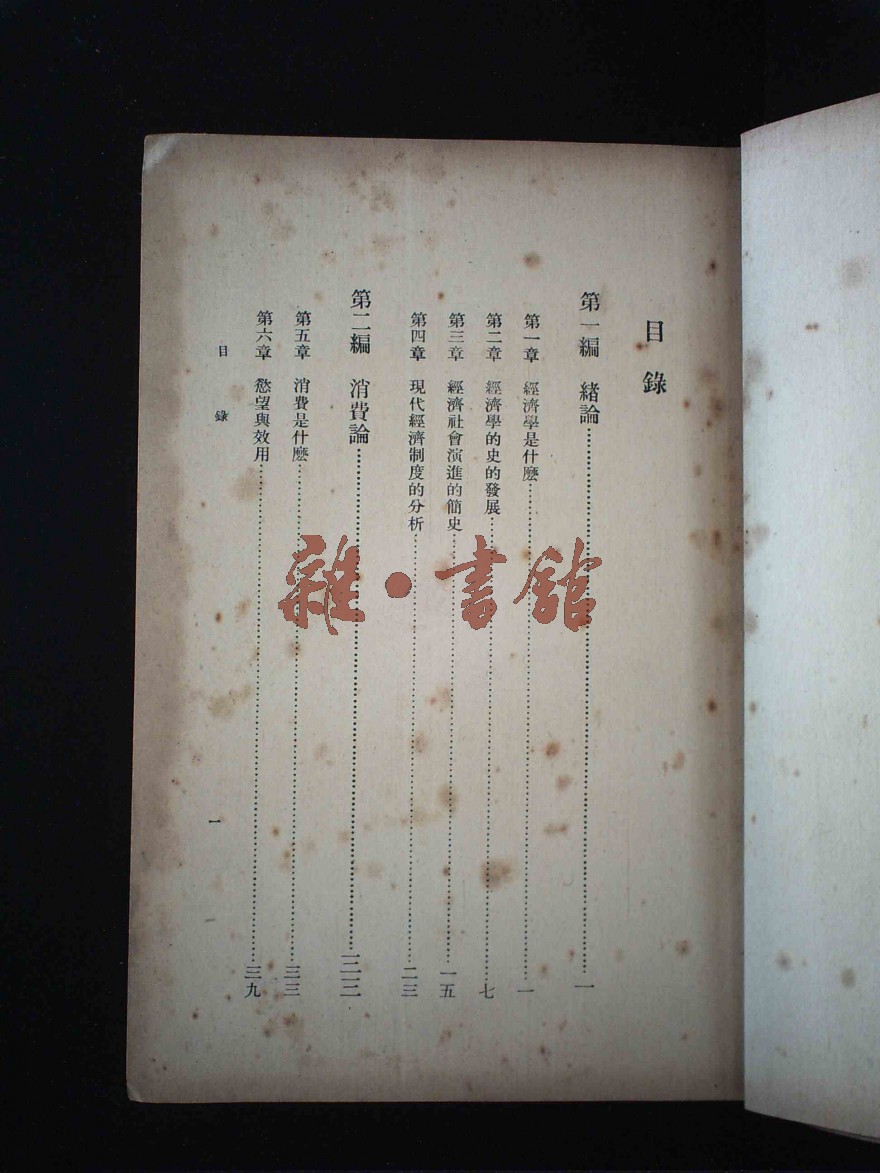 目錄
第一編 緒論……………………一
第一章 經濟學是什麼……………………一
第二章 經濟學的史的發展……………………七
第三章 經濟社會演進的簡史……………………一五
第四章 現代經濟制度的分析……………………二三
第二編 消費論……………………三三
第五章 消費是什麼……………………三三
第六章 慾望與效用……………………三九
目錄
一
雜·書館